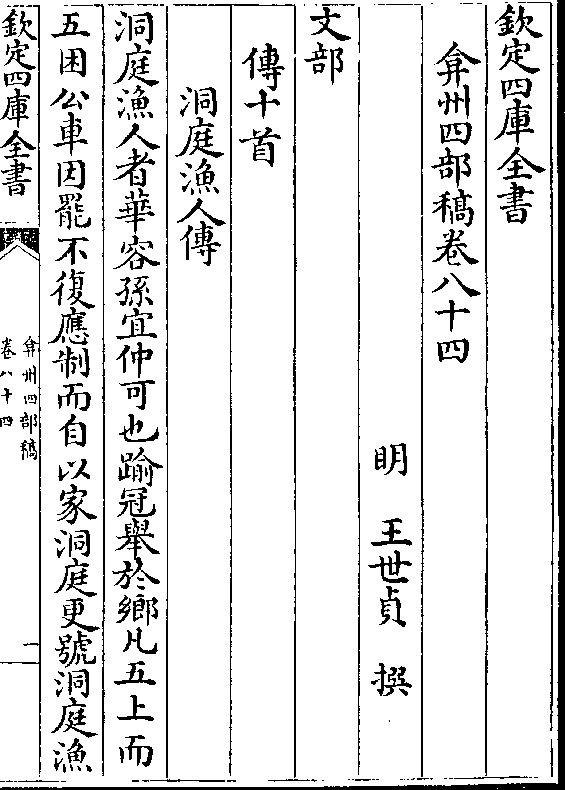 欽定四庫全書
弇州四部稿卷八十四
明 王世貞 撰
文部
傳十首
洞庭漁人傳
洞庭漁人者華容孫宜仲可也踰冠舉於鄉凡五上而
五困公車因罷不復應制而自以家洞庭更號洞庭漁
欽定四庫全書
弇州四部稿
卷八十四
一